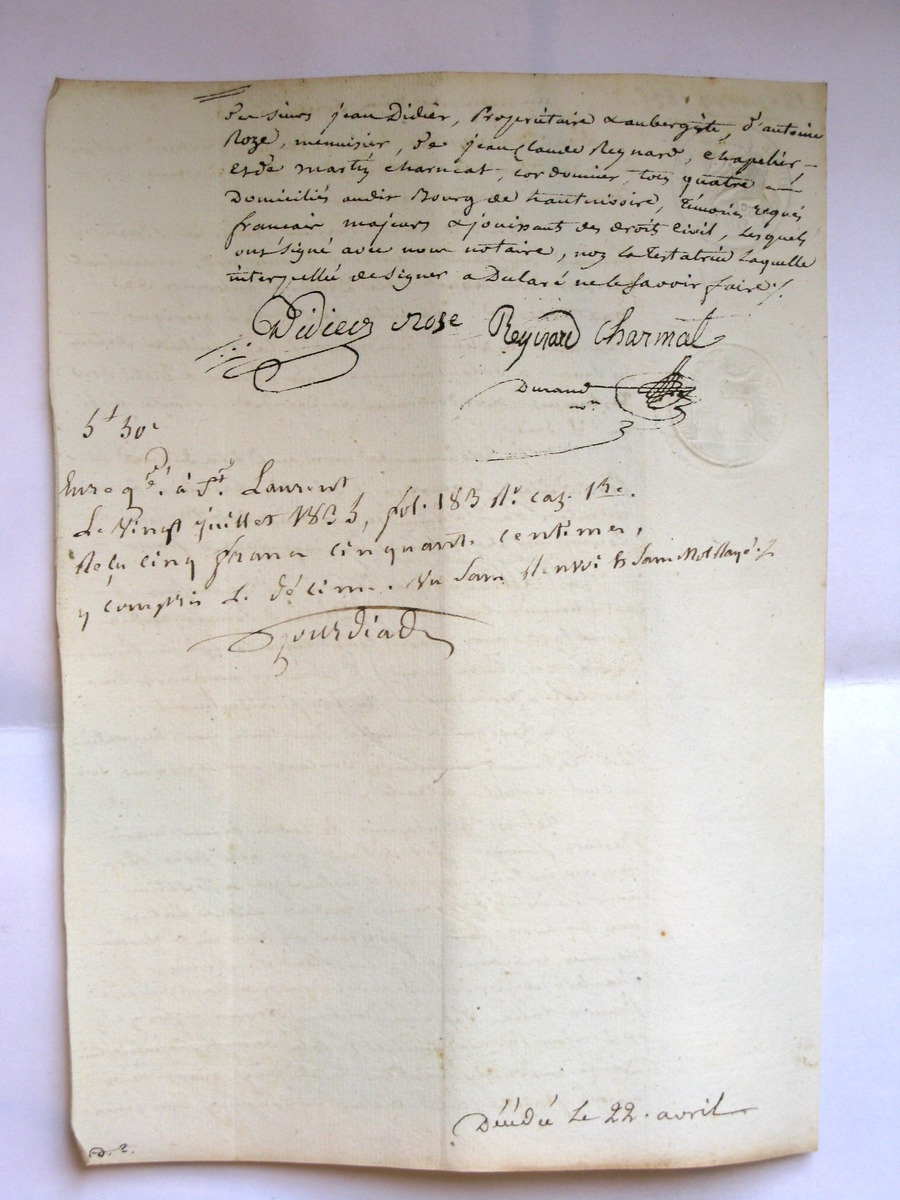 des sieurs jean Didier, Propriétaire & aubergiste, d'antoine
Roze, menuisier, de jean Claude Reynard, chapelier
et de martin charmat, cordonnier, tous quatre
Domiciliés audit Bourg de hauterivoire, témoins requis
francais majeurs & jouissant des droits civil, lesquels
ont signé avec nous notaire, non la Testatrice laquelle
interpellée de signer a Déclaré ne le savoir faire /.
Didier Rose Reynard Charmat
Durand
nore
5f 50c
Enregé. à St. Laurent
Le Vingt juillet 1835, fol. 183 Ro. caz. 1re.
Reçu cinq francs cinquante centimes,
y compris le décime. Vu sans Renvoi & sans Mot Rayé
Gourdiat
Décédée le 22. avril
D. 2.